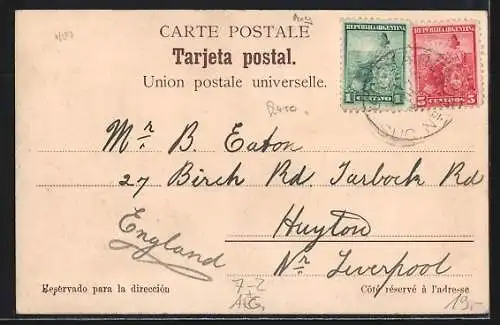 CARTE POSTALE
Tarjeta postal.
Union postale universelle.
REPÚBLICA ARGENTINA
1 CENTAVO 1
REPÚBLICA ARGENTINA
5 CENTAVOS 5
SUC. N
Mr B. Eaton
27 Birch Rd Tarbock Rd
Huyton
England
Nr Liverpool
Reservado para la dirección
7-2
Côté réservé à l'adresse
ARG.
19.-